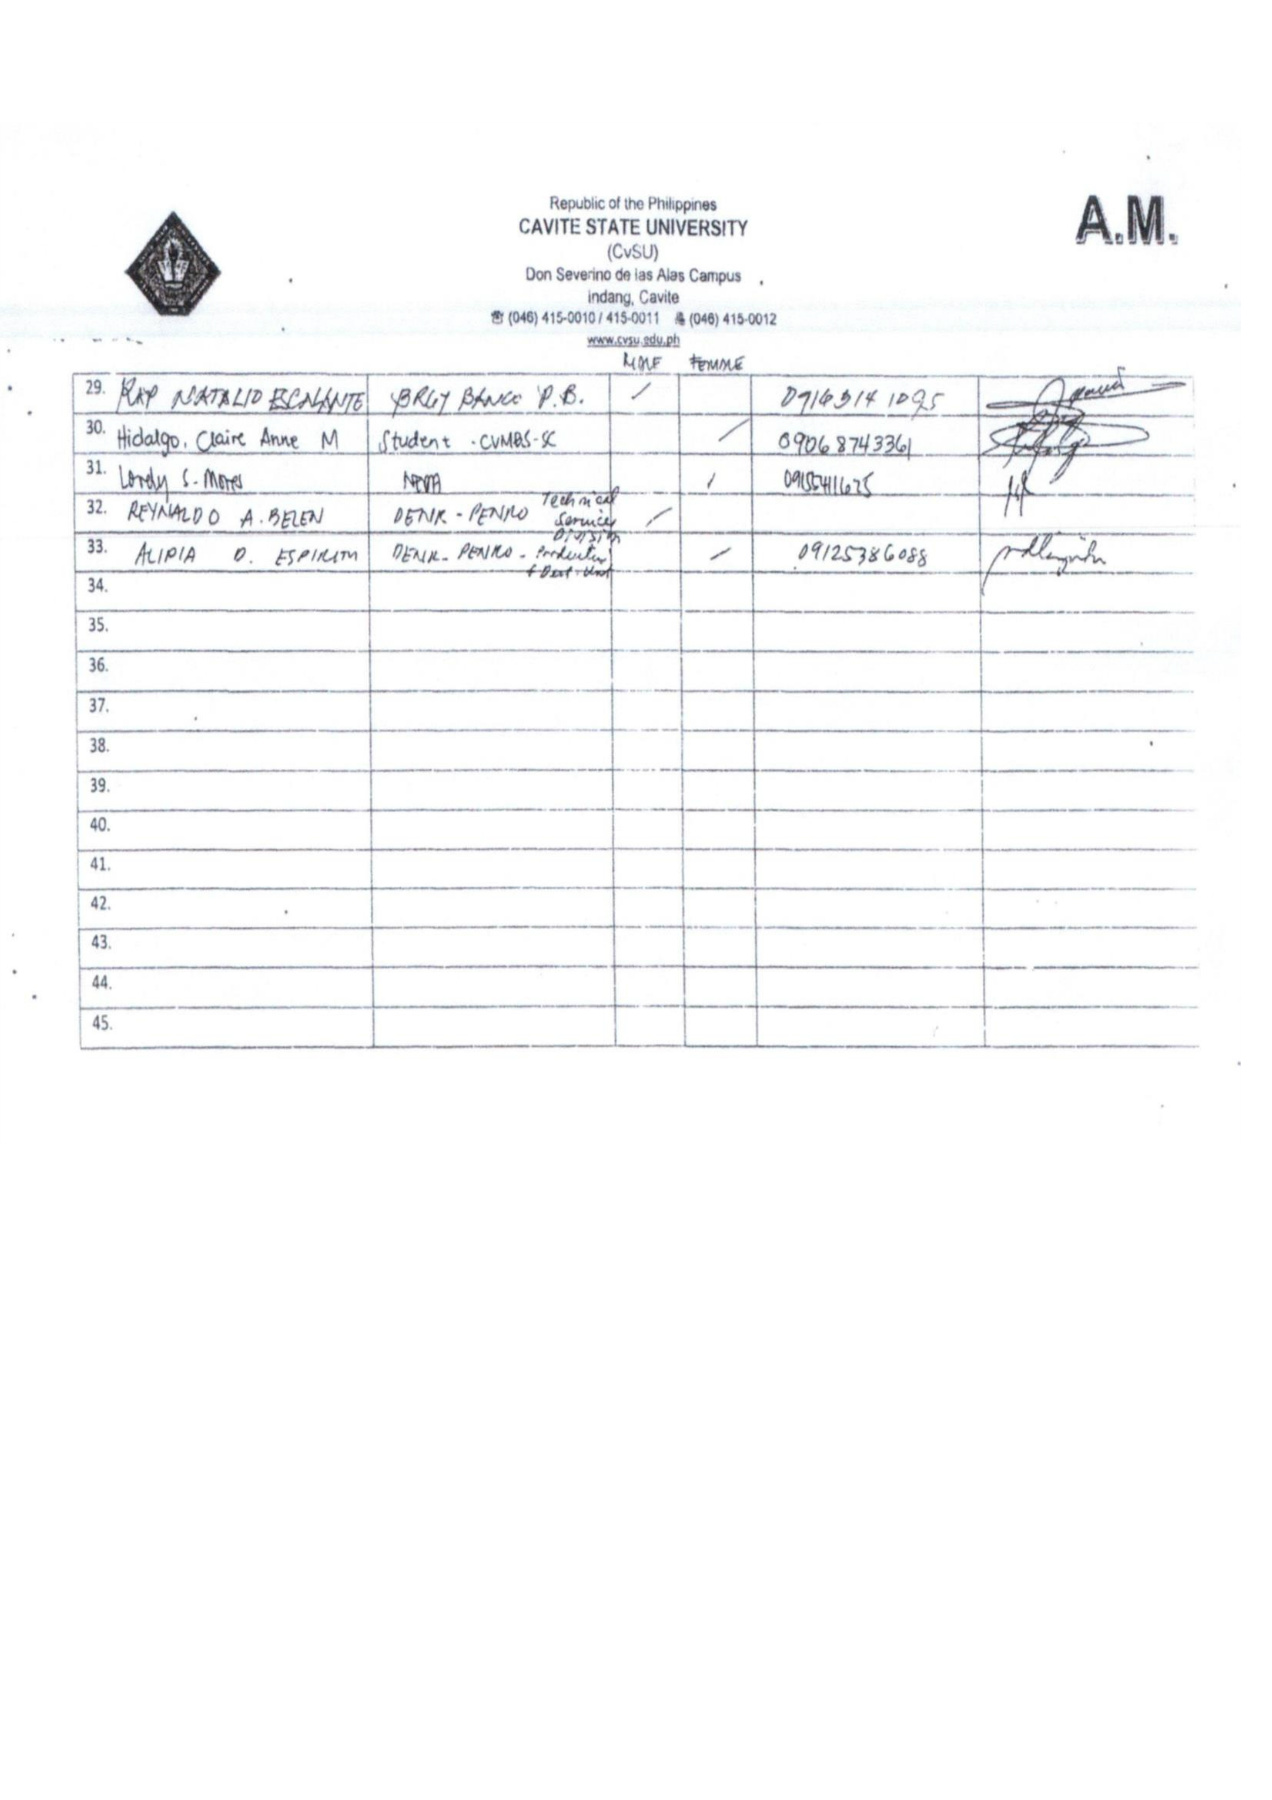 Republic of the Philippines
CAVITE STATE UNIVERSITY
(CvSU)
Don Severino de las Alas Campus
Indang, Cavite
☏ (046) 415-0010 / 415-0011 (046) 415-0012
www.cvsu.edu.ph
A.M.
MALE FEMALE
29. KAP NATALIO ESCALANTE BRGY BANCO P.B. / 0916314 1095
30. Hidalgo, Claire Anne M Student - CVMBS-SC / 09068743361
31. Lordy S. / 09155411625
32. REYNALDO A. BELEN DENR - PENRO Technical Services Division /
33. ALIPIA D. ESPIRITU DENR - PENRO - Production / 09125386088
34.
35.
36.
37.
38.
39.
40.
41.
42.
43.
44.
45.